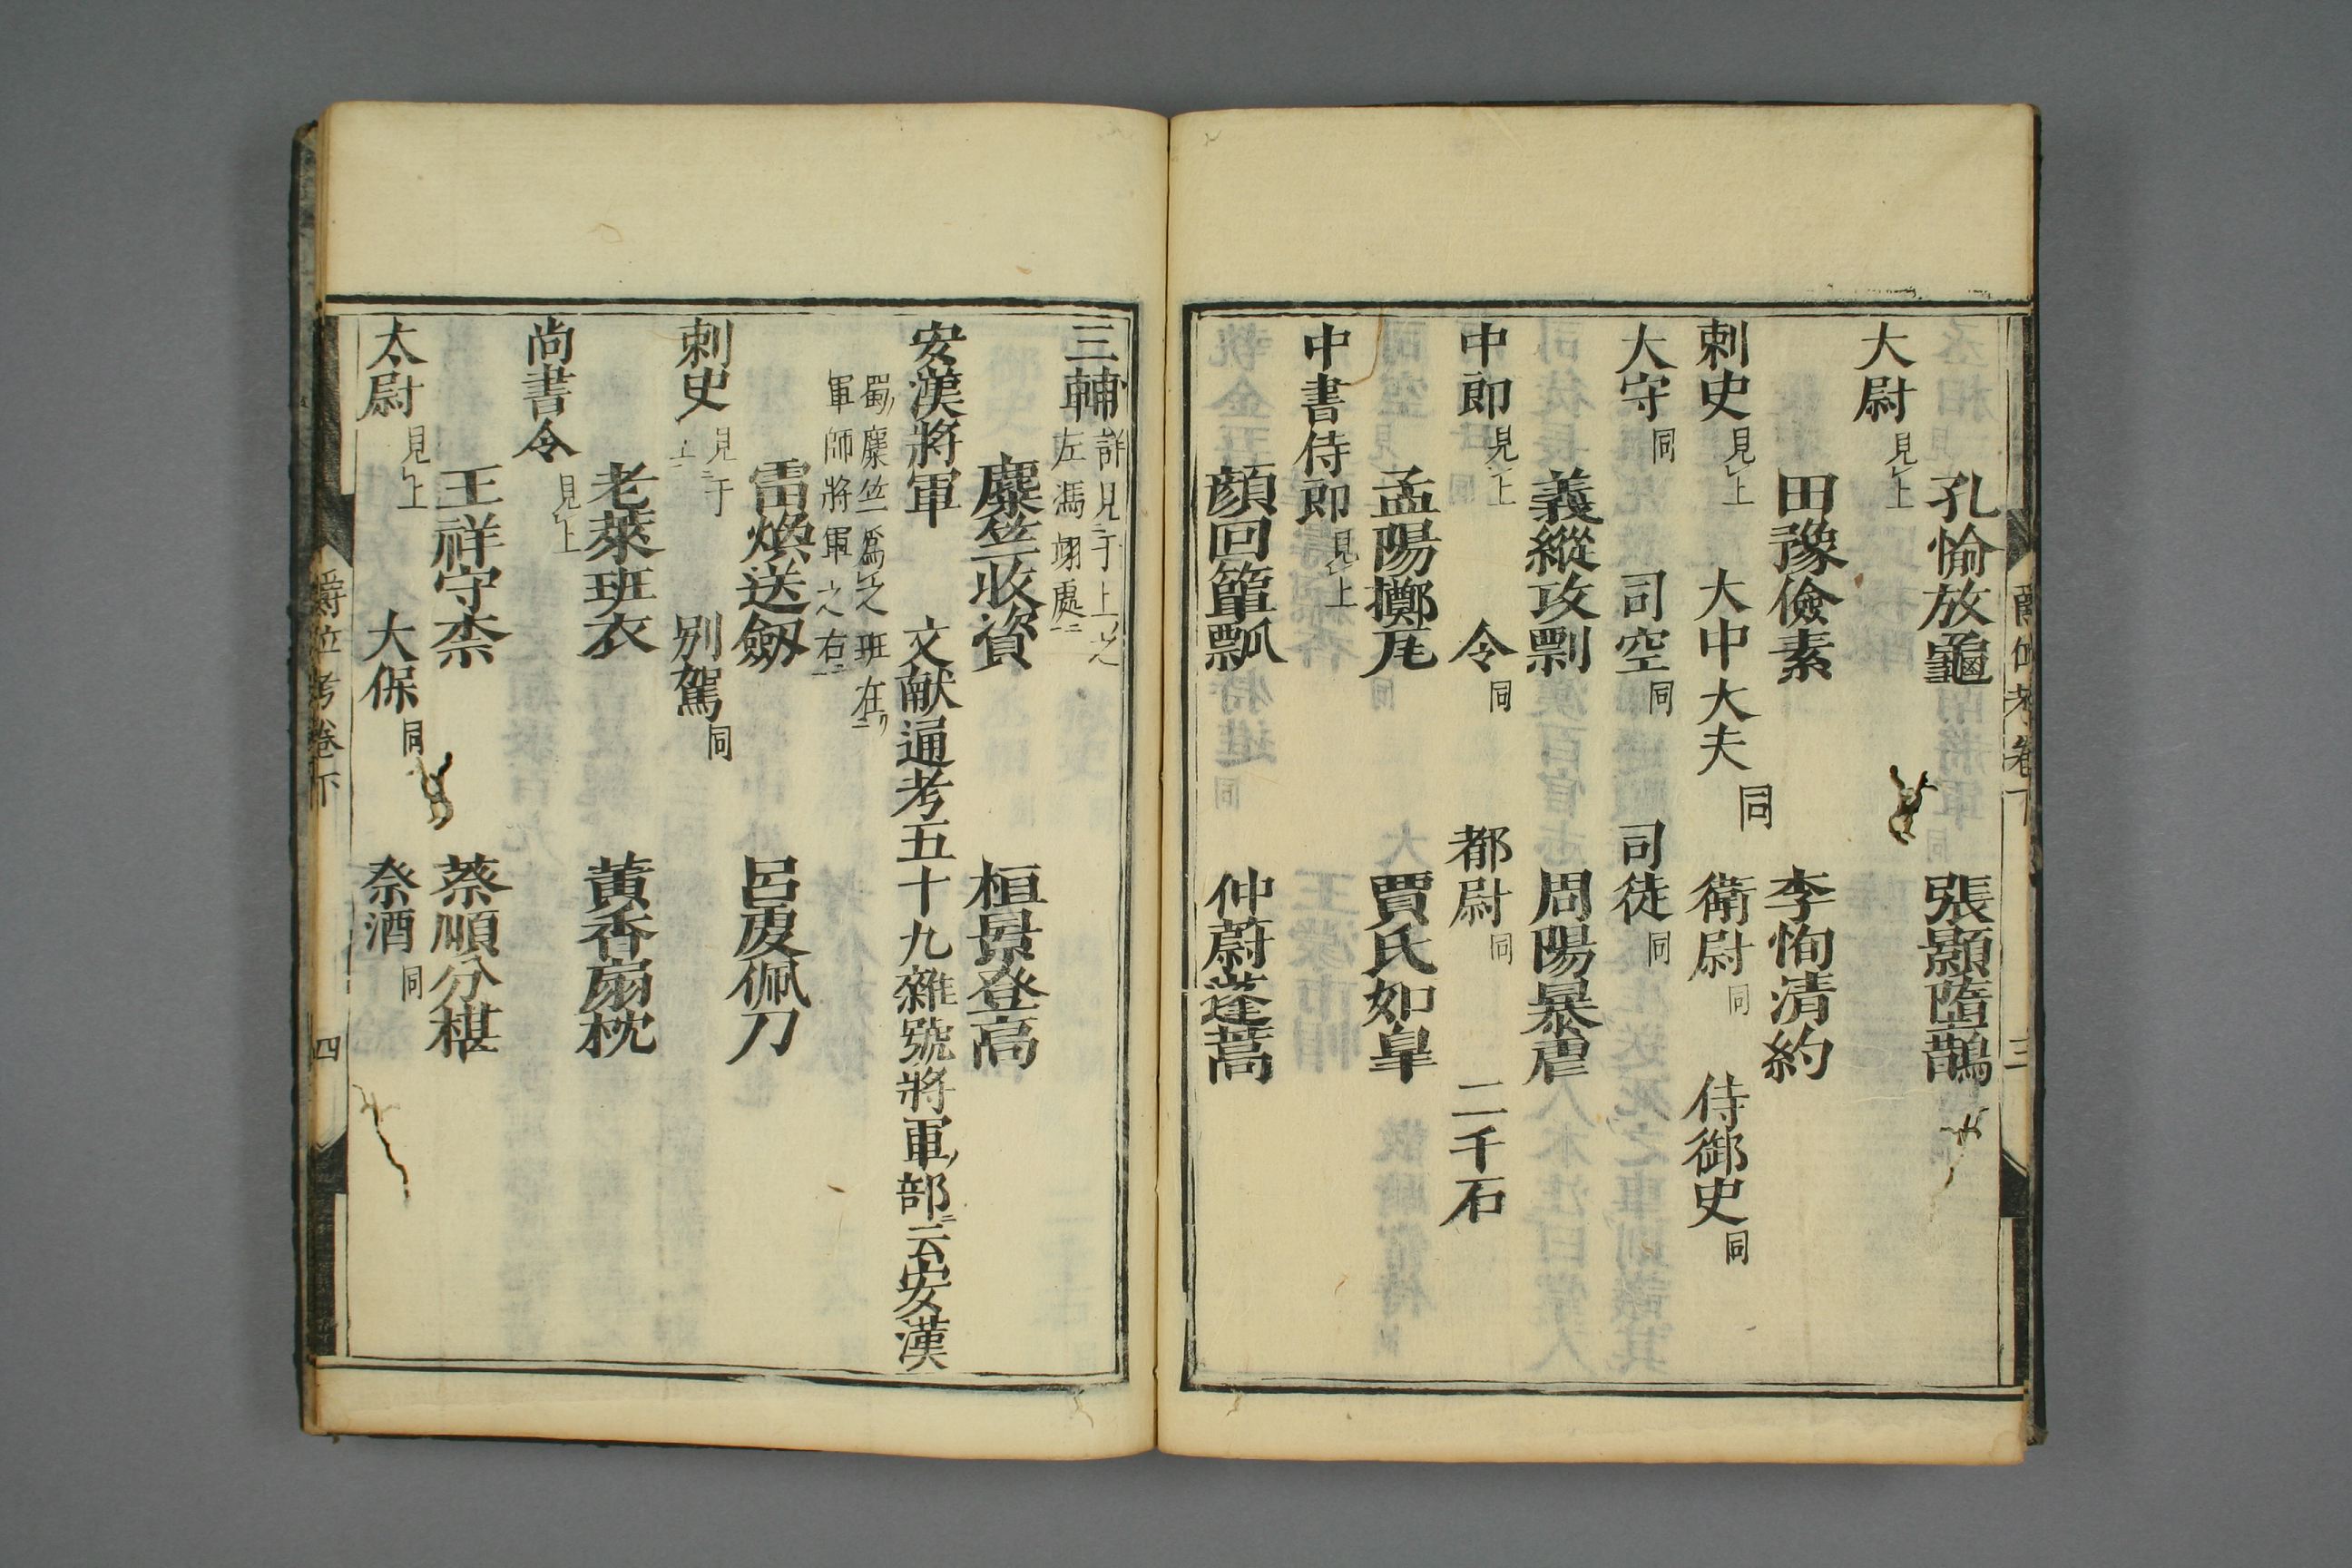 孔愉放龜　張顥墮鵲
大尉見上
田豫儉素　李恂清約
刺史見上　大中大夫同　衛尉同　侍御史同
大守同　司空同　司徒同
義縱攻剽　周陽暴虐
中郎見上　令同　都尉同　二千石
孟陽擲瓦　賈氏如皐
中書侍郎見上
顏回簞瓢　仲蔚蓬蒿
三輔詳見于上之
左馮翊處
麋竺收資　桓景登高
安漢將軍　文献通考五十九雜號將軍部云安漢
蜀麋竺為之班在
軍師將軍之右
雷煥送劔　呂虔佩刀
刺史見于上　別駕同
老萊班衣　黃香扇枕
尚書令見上
王祥守柰　蔡順分椹
太尉見上　大保同　祭酒同
爵位考卷下　四